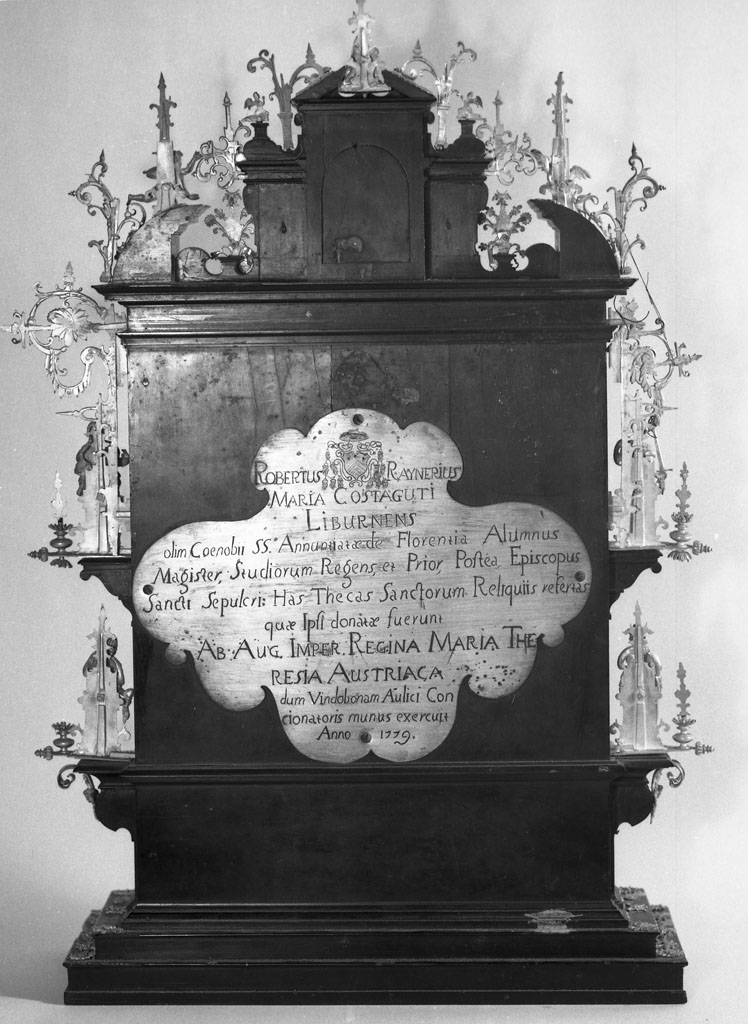 ROBERTUS RAYNERIUS
MARIA COSTAGUTI
LIBURNENS
olim Coenobii SS. Annuntiatæ de Florentia Alumnus
Magister, Studiorum Regens, et Prior, Postea Episcopus
Sancti Sepulcri: Has Thecas Sanctorum Reliquiis refertas
quæ Ipsi donatæ fuerunt
AB. AUG. IMPER. REGINA MARIA THE
RESIA AUSTRIACA
dum Vindobonam Aulici Con
cionatoris munus exercuit
Anno 1779.